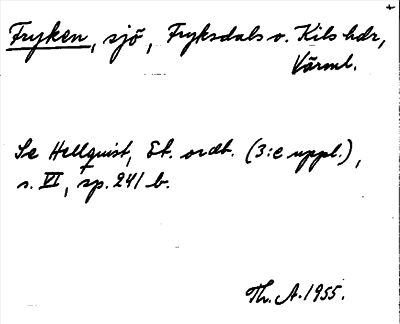 Fryken, sjö, Fryksdals o. Kils hdr,
Värml.
Se Hellquist, Et. ordb. (3:e uppl.),
s. VI, sp. 241 b.
Th. A. 1955.